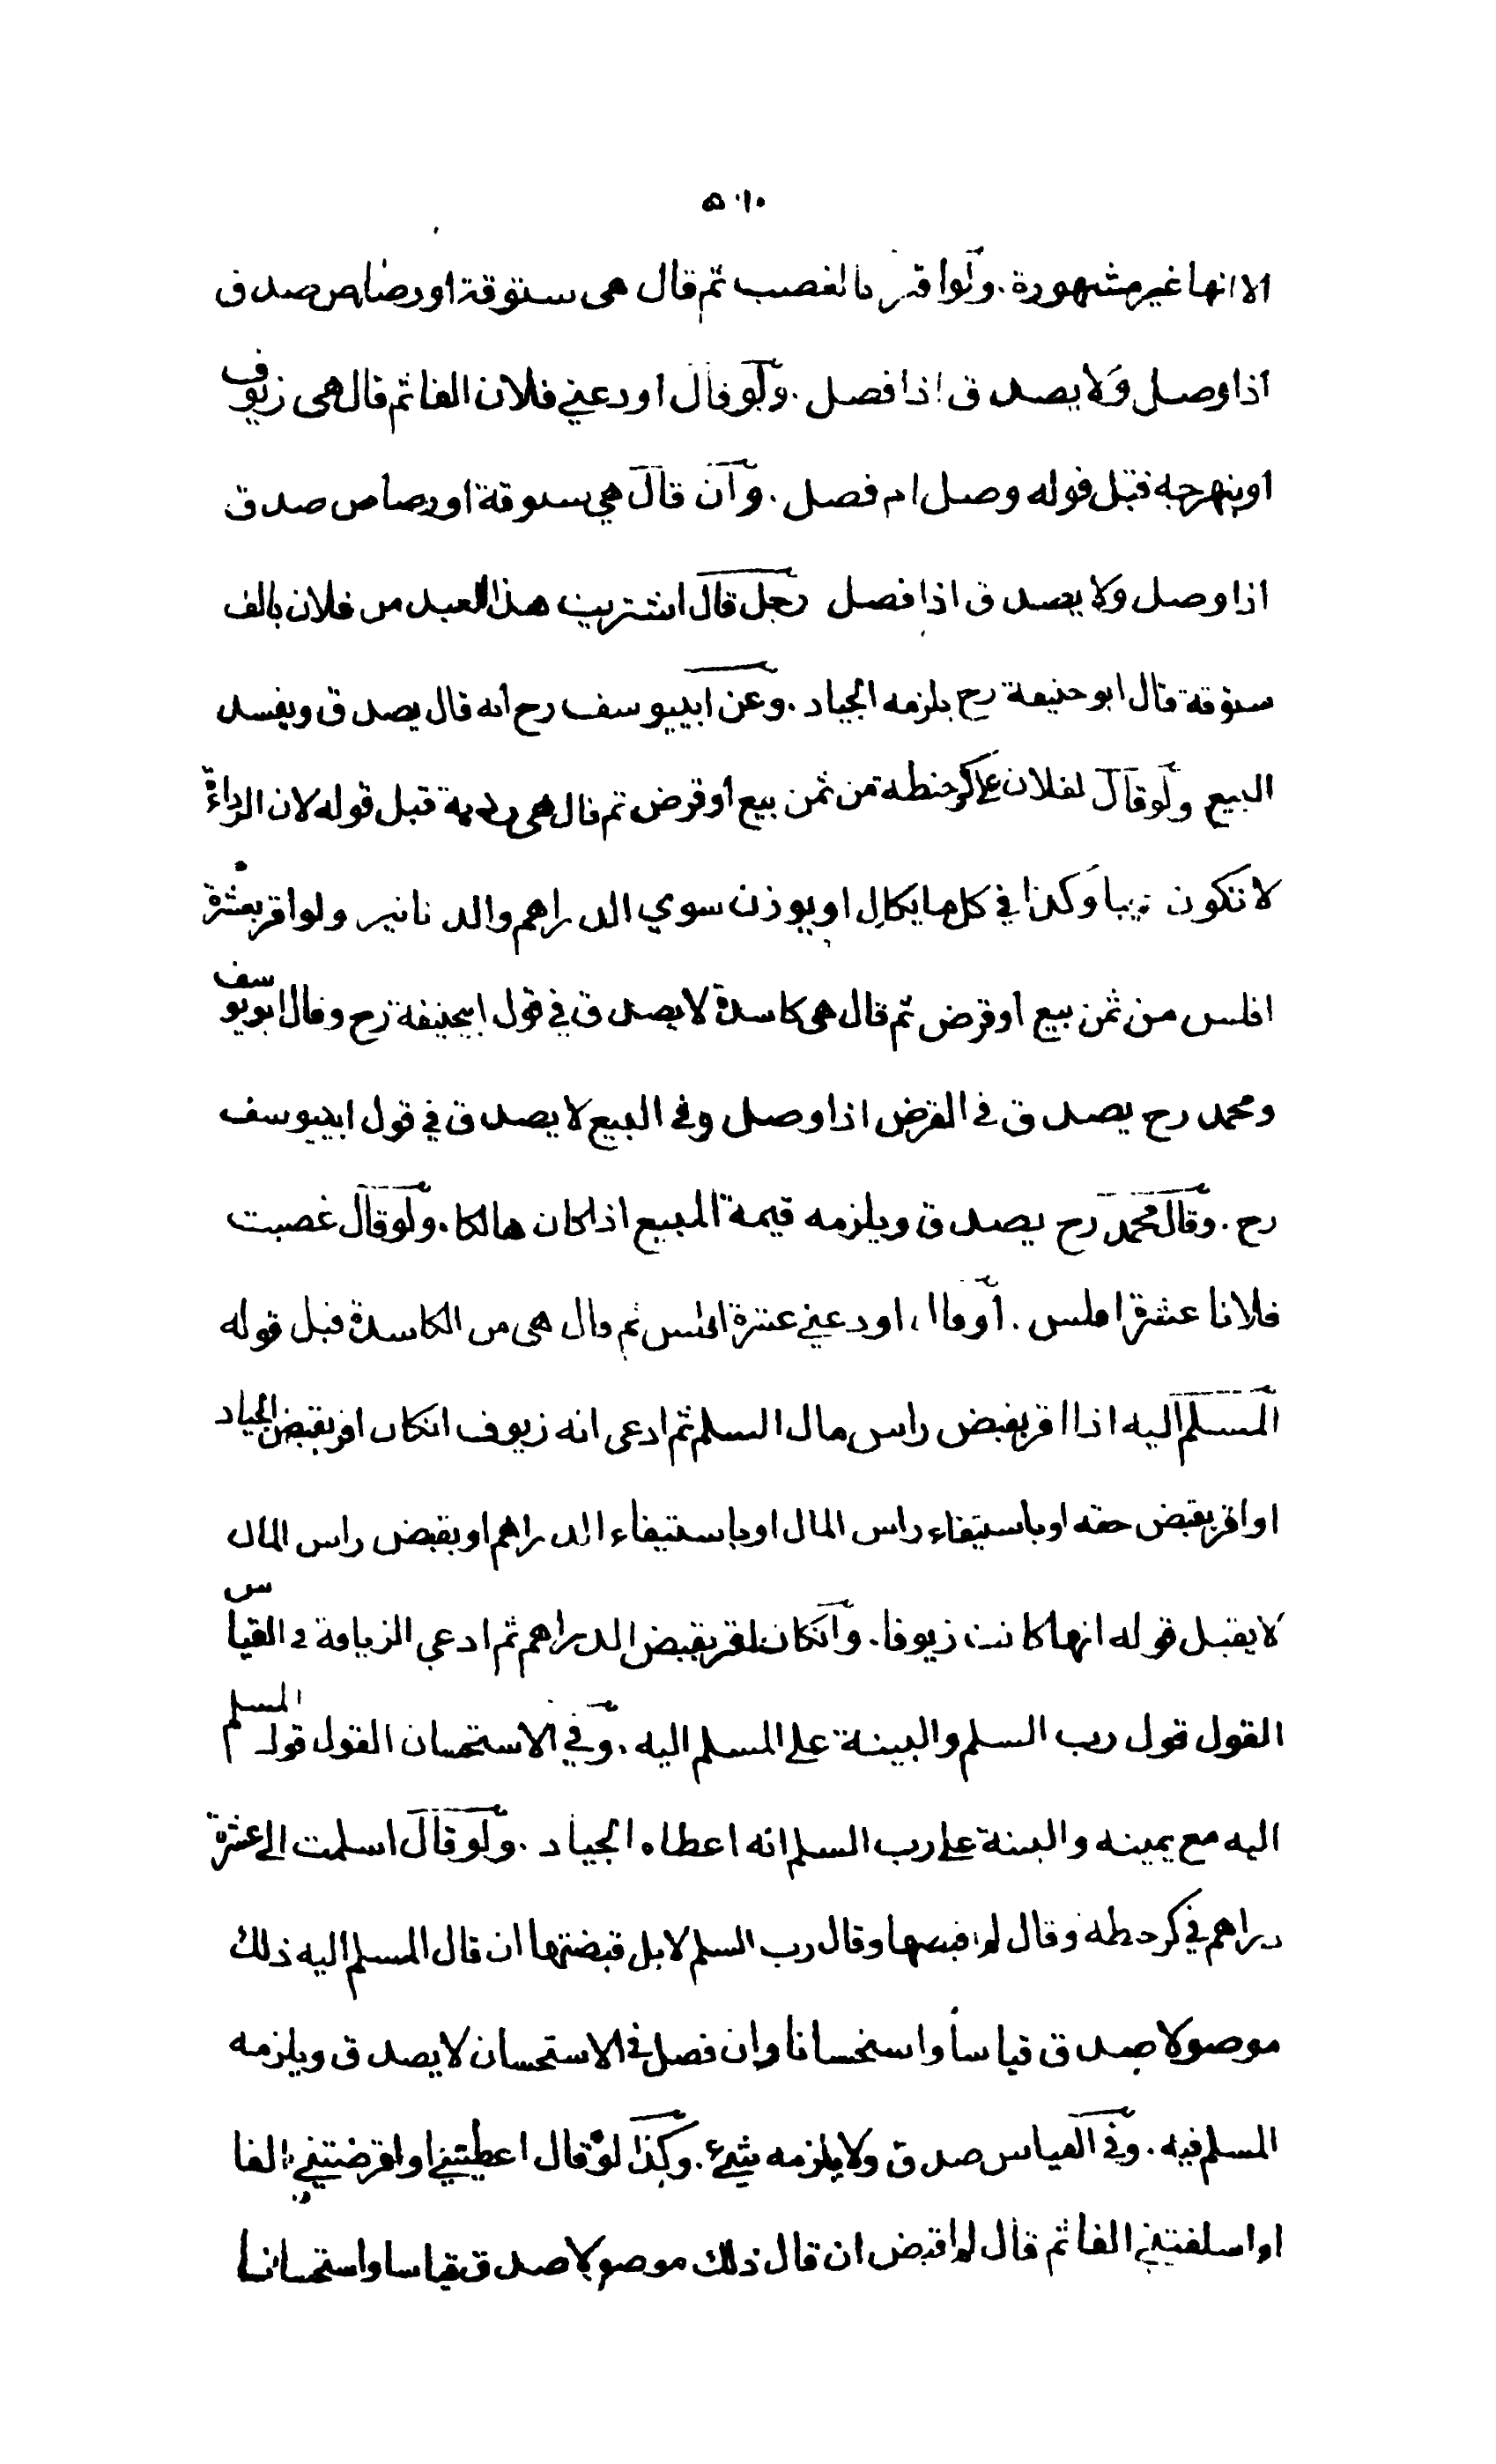 ٥٠١٠
الا انها غير مشهورة . ولو اقر بالغصب ثم قال هى ستوقة اورصاص صدق
اذا وصل ولا يصدق اذا فصل . ولو قال اودعني فلان الفا ثم قال هى زيوف
او بنهرجه قبل قوله وصل ام فصل . وان قال هي ستوقة اورصاص صدق
اذا وصل ولا يصدق اذا فصل رجل قال اشتريت هذا العبد من فلان بالف
ستوقة قال ابوحنيفة رح يلزمه الجياد . وعن ابييوسف رح انه قال يصدق ويفسد
البيع ولو قال لفلان على كر حنطة من ثمن بيع اوقرض ثم قال هى ردية قبل قوله لان الرداءة
لا تكون عيبا وكذا في كل ما يكال او يوزن سوي الدراهم والدنانير ولو اقر بعشرة
افلس من ثمن بيع اوقرض ثم قال هى كاسدة لا يصدق في قول ابيحنيفة رح وقال ابويوسف
ومحمد رح يصدق في القرض اذا وصل وفى البيع لا يصدق في قول ابييوسف
رح . وقال محمد رح يصدق ويلزمه قيمة المبيع اذا كان هالكا . ولو قال غصبت
فلانا عشرة افلس . او قال اودعني عشرة افلس ثم قال هى من الكاسدة قبل قوله
المسلم اليه اذا اقر بقبض راس مال السلم ثم ادعى انه زيوف انكان اقر بقبض الجياد
او اقر بقبض حقه او باستيفاء راس المال او باستيفاء الدراهم او بقبض راس المال
لا يقبل قوله انها كانت زيوفا . وانكان اقر بقبض الدراهم ثم ادعي الزيافة فى القياس
القول قول رب السلم والبينة على المسلم اليه . وفي الاستحسان القول قول المسلم
اليه مع يمينه والبينة على رب السلم انه اعطاه الجياد . ولو قال اسلمت الى عشرة
دراهم في كر حنطة وقال لم اقبضها وقال رب السلم لا بل قبضتها ان قال المسلم اليه ذلك
موصولا صدق قياسا واستحسانا وان فصل في الاستحسان لا يصدق ويلزمه
المسلم فيه . وفى القياس صدق ولا يلزمه شيء . وكذا لو قال اعطيتني او اقرضتني الفا
او اسلفتني الفا ثم قال لم اقبض ان قال ذلك موصولا صدق قياسا واستحسانا